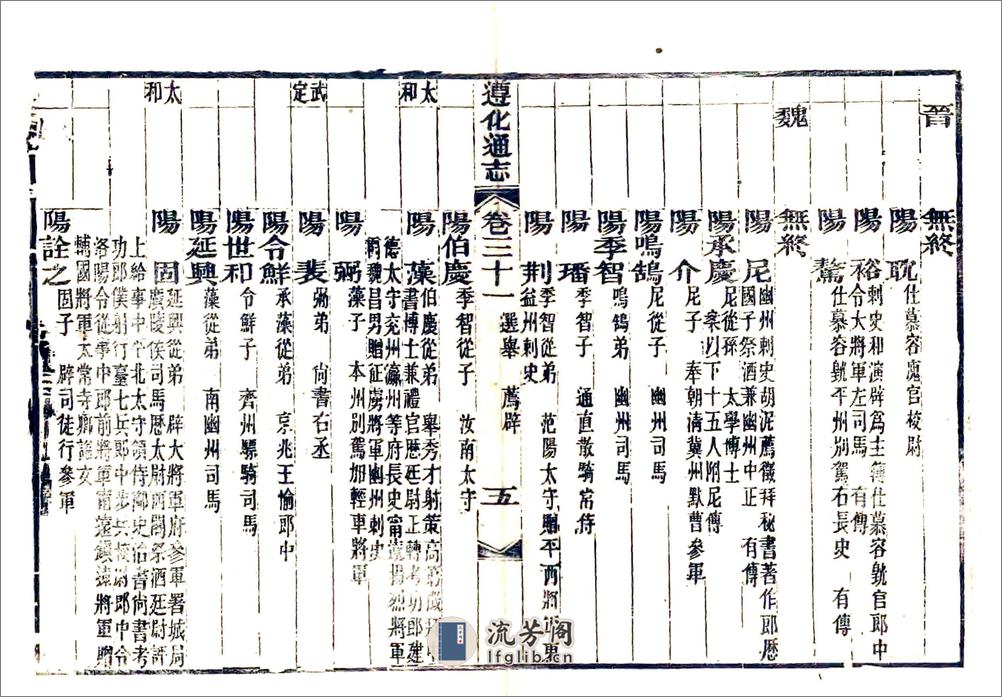 晉
無終
陽耽 仕慕容廆官校尉
陽裕 刺史和演辟爲主簿仕慕容皝官郎中
令大將軍左司馬 有傳
陽騖 仕慕容皝平州別駕右長史 有傳
魏
無終
陽尼 幽州刺史胡泥薦徵拜秘書著作郎歷
國子祭酒兼幽州中正 有傳
陽承慶 尼從孫 太學博士
以下十五人附尼傳
陽介 尼子 奉朝淸冀州默曹參軍
陽鳴鵠 尼從子 幽州司馬
陽季智 鳴鵠弟 幽州司馬
陽璠 季智子 通直散騎常侍
陽荆 季智從弟 范陽太守贈平西將軍東
益州刺史
遵化通志
卷三十一 選舉 薦辟
五
陽伯慶 季智從子 汝南太守
太和
陽藻 伯慶從弟 舉秀才射策高第
書博士兼禮官歷廷尉正轉考功郎建
德太守兗州瀛州等府長史甯遠揚烈將軍
魏昌男贈征虜將軍幽州刺史
陽弼 藻子 本州別駕加輕車將軍
武定
陽斐 弼弟 尙書右丞
陽令鮮 承藻從弟 京兆王愉郎中
陽世和 令鮮子 齊州驃騎司馬
陽延興 藻從弟 南幽州司馬
太和
陽固 延興從弟 辟大將軍府參軍署城局
慶陵侯司馬歷太尉西閤祭酒廷尉評
上給事中北太守領侍御史治書尙書考
功郎僕射行臺七兵郎中步兵校尉郎中令
洛陽令從事中郎前將軍甯遠鎮遠將軍贈
輔國將軍太常寺卿諡文
陽詮之 固子 辟司徒行參軍
流芳閣
lfglib.cn